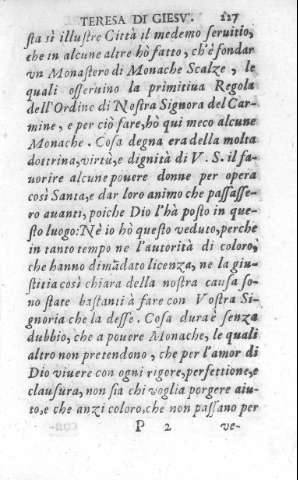 TERESA DI GIESV'. 227
sta sì illustre Città il medemo seruitio,
che in alcune altre hò fatto, ch'è fondar
vn Monastero di Monache Scalze, le
quali osseruino la primitiua Regola
dell'Ordine di Nostra Signora del Car-
mine, e per ciò fare, hò qui meco alcune
Monache. Cosa degna era della molta
dottrina, virtù, e dignità di V. S. il fa-
uorire alcune pouere donne per opera
così Santa, e dar loro animo che passasse-
ro auanti, poiche Dio l'hà posto in que-
sto luogo: Nè io hò questo veduto, perche
in tanto tempo ne l'autorità di coloro,
che hanno dimãdato licenza, ne la giu-
stitia così chiara della nostra causa so-
no state bastanti à fare con Vostra Si-
gnoria che la desse. Cosa dura è senza
dubbio, che a pouere Monache, le quali
altro non pretendono, che per l'amor di
Dio viuere con ogni rigore, perfettione, e
clausura, non sia chi voglia porgere aiu-
to, e che anzi coloro, che non passano per
P 2 ve-